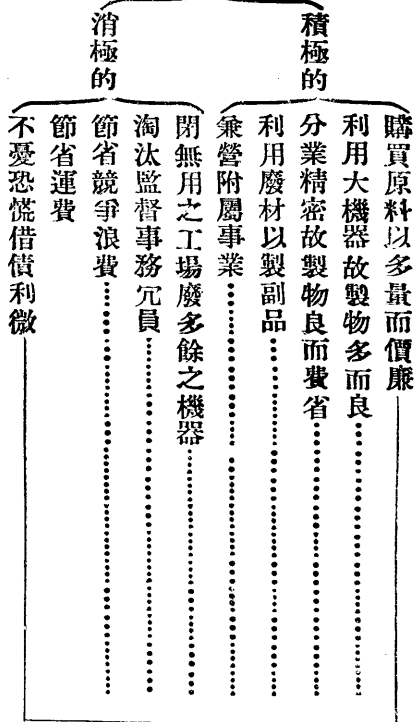 積極的
購買原料以多量而價廉
利用大機器故製物多而良
分業精密故製物良而費省
利用廢材以製副品
兼營附屬事業
消極的
閉無用之工場廢多餘之機器
淘汰監督事務冗員
節省競爭浪費
節省運費
不憂恐慌借債利微